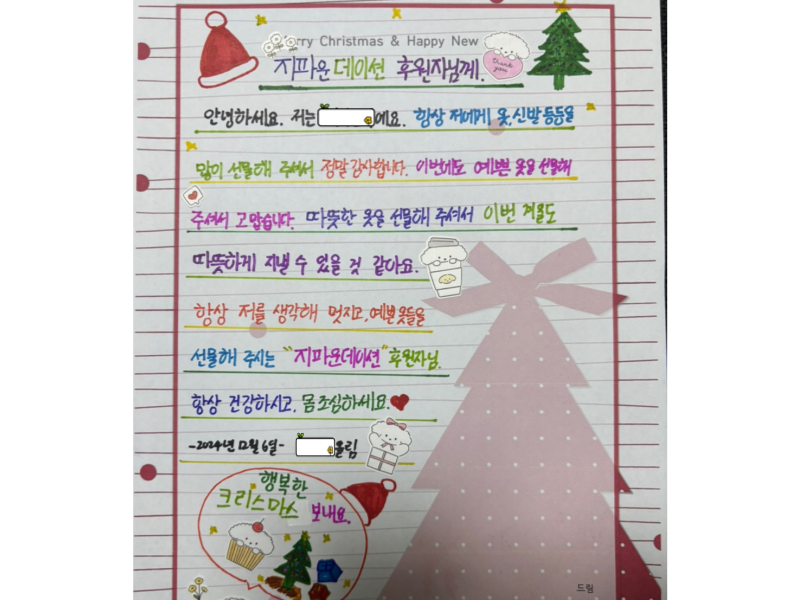 rry Christmas & Happy New
지파운데이션 후원자님께.
thank you
안녕하세요. 저는 예요. 항상 저에게 옷, 신발 등등을
많이 선물해 주셔서 정말 감사합니다. 이번에도 예쁜 옷을 선물해
주셔서 고맙습니다. 따뜻한 옷을 선물해 주셔서 이번 겨울도
따뜻하게 지낼 수 있을 것 같아요.
항상 저를 생각해 멋지고, 예쁜 옷들을
선물해 주시는 "지파운데이션" 후원자님.
항상 건강하시고, 몸 조심하세요.
-2024년 12월 6일- 올림
행복한
크리스마스 보내요.
드림